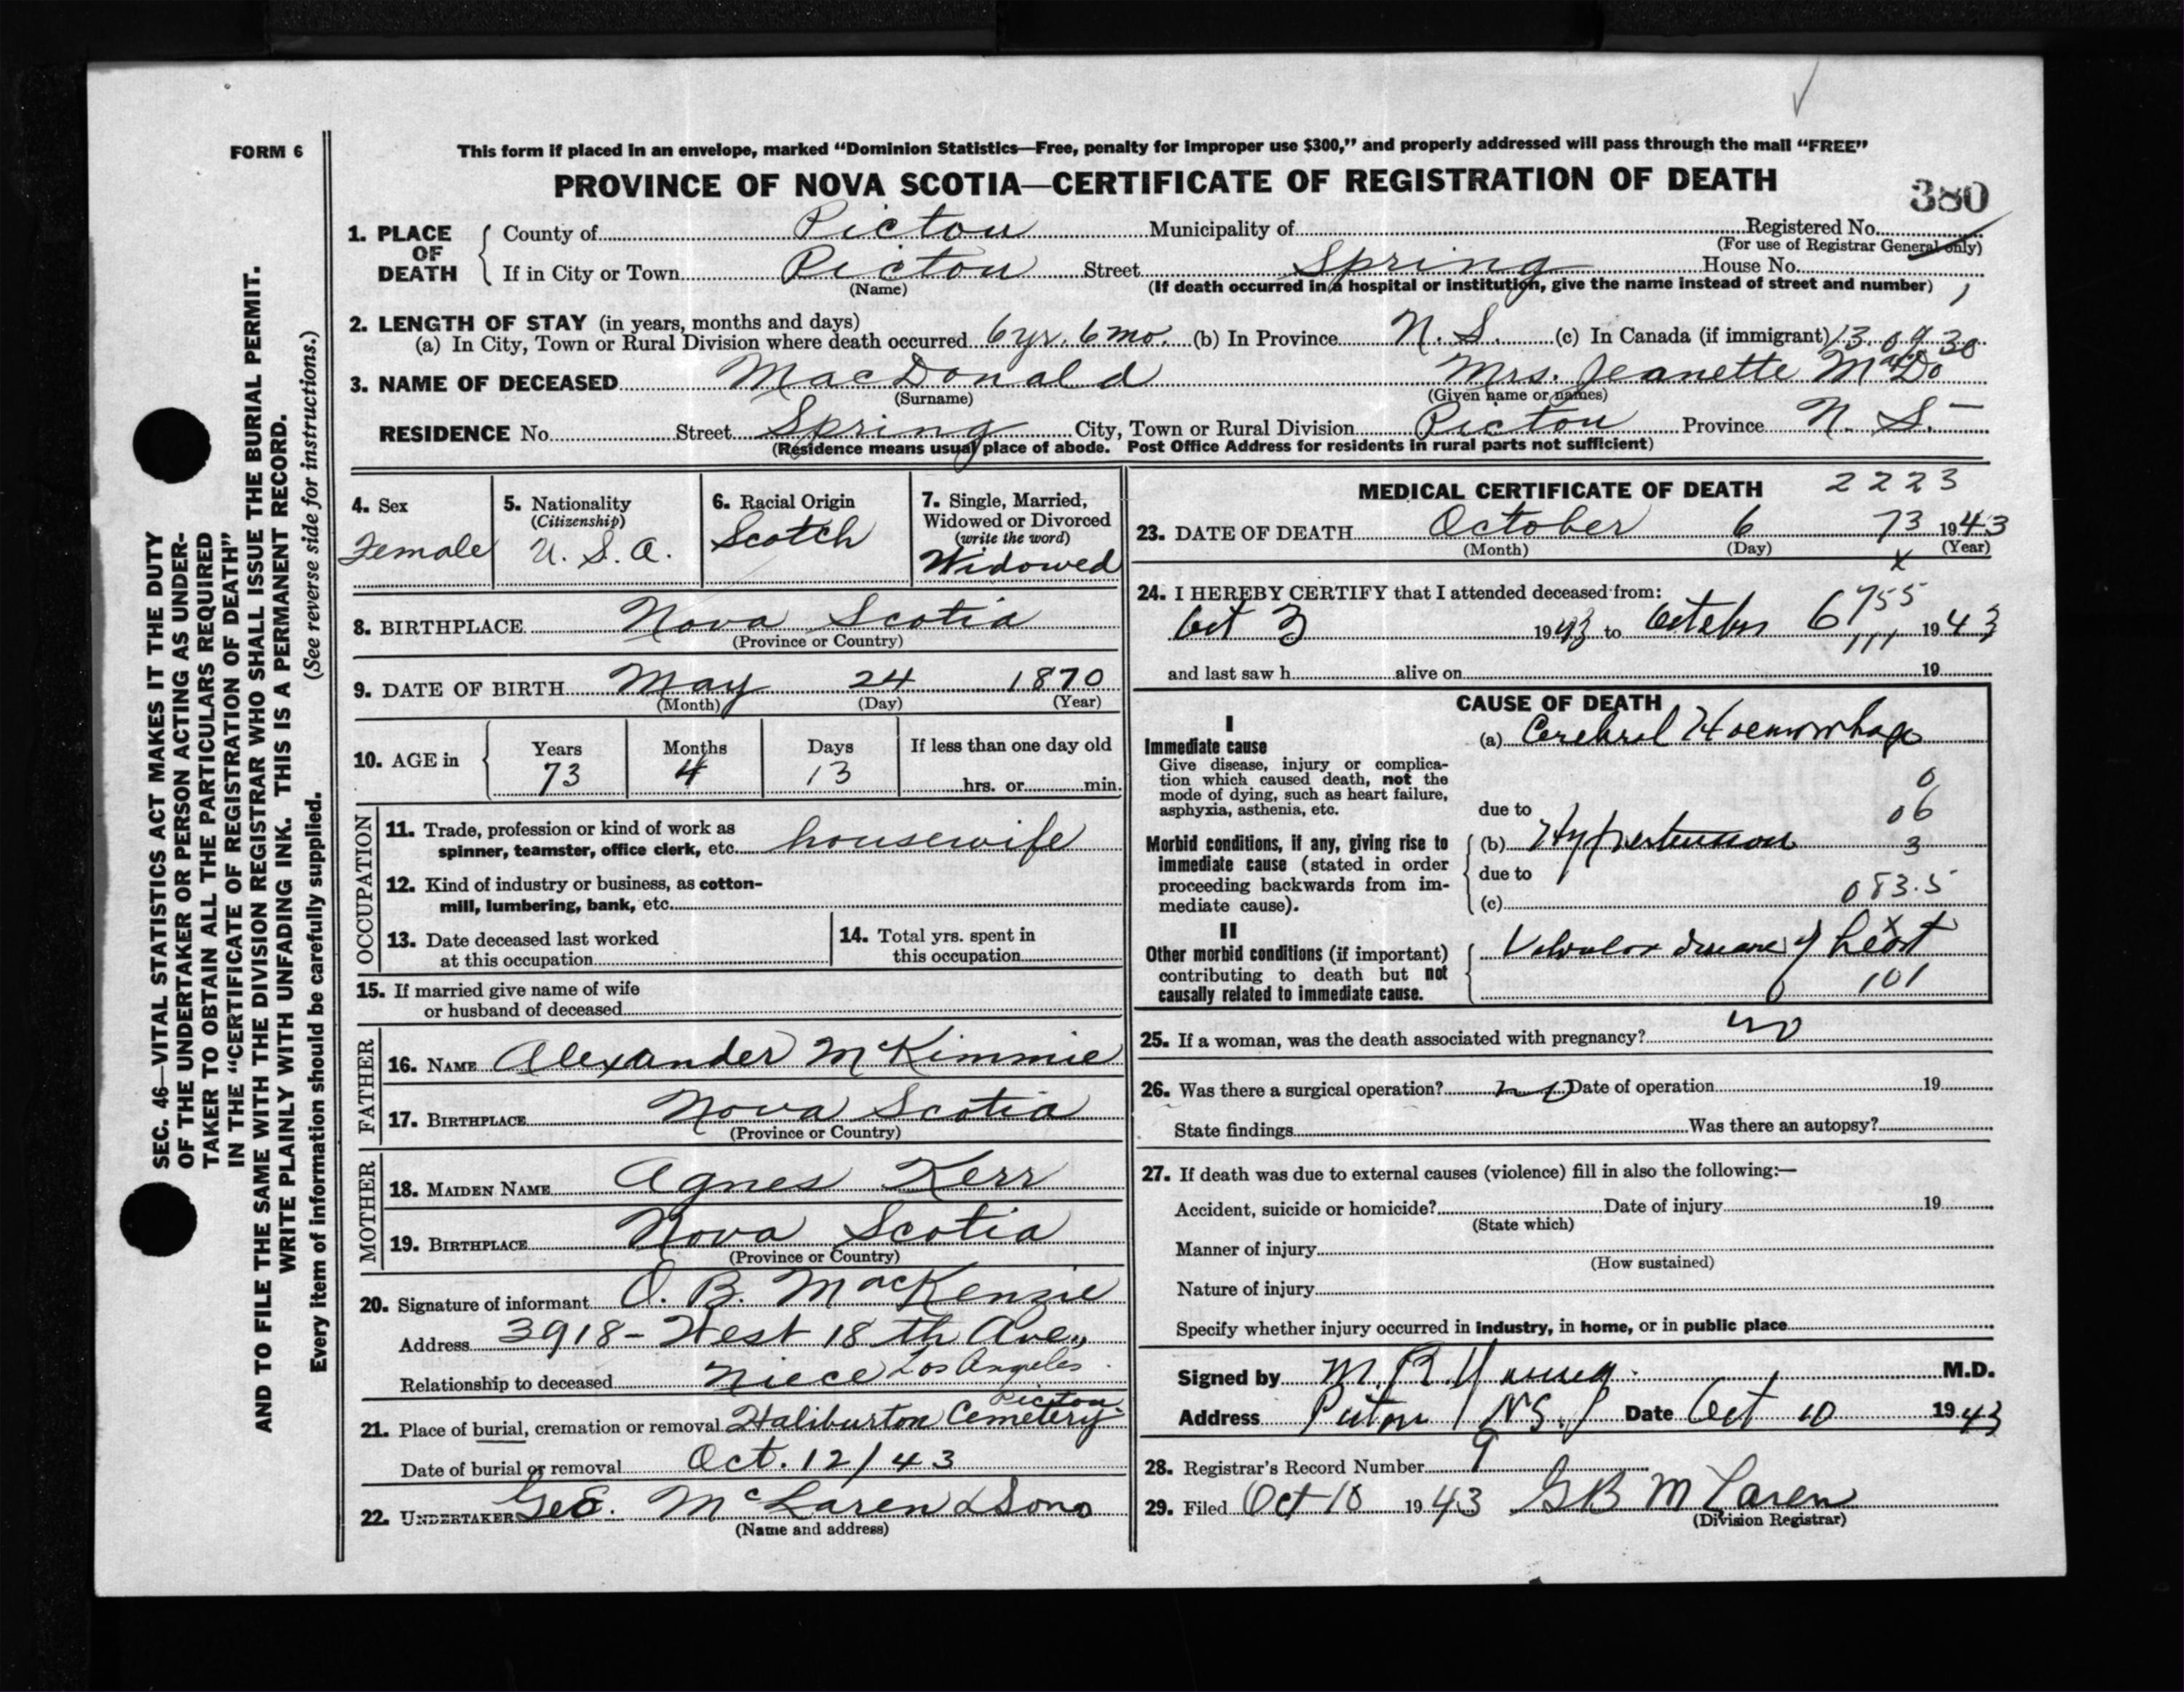 FORM 6
This form if placed in an envelope, marked “Dominion Statistics—Free, penalty for improper use $300,” and properly addressed will pass through the mail “FREE”
PROVINCE OF NOVA SCOTIA—CERTIFICATE OF REGISTRATION OF DEATH
380
1. PLACE OF DEATH
County of Pictou Municipality of Registered No.
(For use of Registrar General only)
If in City or Town Pictou Street Spring House No.
(Name) (If death occurred in a hospital or institution, give the name instead of street and number)
2. LENGTH OF STAY (in years, months and days)
(a) In City, Town or Rural Division where death occurred 6 yr. 6 mo. (b) In Province N. S. (c) In Canada (if immigrant)
3. NAME OF DECEASED MacDonald Mrs. Jeanette
(Surname) (Given name or names)
RESIDENCE No. Street Spring City, Town or Rural Division Pictou Province N. S.
(Residence means usual place of abode. Post Office Address for residents in rural parts not sufficient)
4. Sex
Female
5. Nationality
(Citizenship)
U. S. A.
6. Racial Origin
Scotch
7. Single, Married,
Widowed or Divorced
(write the word)
Widowed
8. BIRTHPLACE Nova Scotia
(Province or Country)
9. DATE OF BIRTH May 24 1870
(Month) (Day) (Year)
10. AGE in Years Months Days If less than one day old
73 4 13 hrs. or min.
OCCUPATION
11. Trade, profession or kind of work as
spinner, teamster, office clerk, etc. housewife
12. Kind of industry or business, as cotton-
mill, lumbering, bank, etc.
13. Date deceased last worked
at this occupation
14. Total yrs. spent in
this occupation
15. If married give name of wife
or husband of deceased
FATHER
16. NAME Alexander McKimmie
17. BIRTHPLACE Nova Scotia
(Province or Country)
MOTHER
18. MAIDEN NAME Agnes Kerr
19. BIRTHPLACE Nova Scotia
(Province or Country)
20. Signature of informant O. B. MacKenzie
Address 3918 - West 18 th Ave.,
Los Angeles
Relationship to deceased niece
Pictou
21. Place of burial, cremation or removal Haliburton Cemetery
Date of burial or removal Oct. 12/43
22. UNDERTAKER Geo. McLaren & Sons
(Name and address)
MEDICAL CERTIFICATE OF DEATH 2223
23. DATE OF DEATH October 6 73 1943
(Month) (Day) (Year)
x
24. I HEREBY CERTIFY that I attended deceased from:
755
Oct 3 1943 to October 6 1943
111
and last saw h alive on 19
CAUSE OF DEATH
I
Immediate cause
Give disease, injury or complica-
tion which caused death, not the
mode of dying, such as heart failure,
asphyxia, asthenia, etc.
(a) Cerebral Haemorrhage
0
due to 06
Morbid conditions, if any, giving rise to
immediate cause (stated in order
proceeding backwards from im-
mediate cause).
(b) Hypertension 3
due to
(c) 083.5
II
Other morbid conditions (if important)
contributing to death but not
causally related to immediate cause.
Valvular disease of heart
x
101
25. If a woman, was the death associated with pregnancy? no
26. Was there a surgical operation? no Date of operation 19
State findings Was there an autopsy?
27. If death was due to external causes (violence) fill in also the following:—
Accident, suicide or homicide? Date of injury 19
(State which)
Manner of injury
(How sustained)
Nature of injury
Specify whether injury occurred in industry, in home, or in public place
Signed by M. R. Young M.D.
Address Pictou N.S. Date Oct 10 1943
28. Registrar's Record Number 9
29. Filed Oct 1943 G B McLaren
(Division Registrar)
SEC. 46—VITAL STATISTICS ACT MAKES IT THE DUTY
OF THE UNDERTAKER OR PERSON ACTING AS UNDER-
TAKER TO OBTAIN ALL THE PARTICULARS REQUIRED
IN THE “CERTIFICATE OF REGISTRATION OF DEATH”
AND TO FILE THE SAME WITH THE DIVISION REGISTRAR WHO SHALL ISSUE THE BURIAL PERMIT.
WRITE PLAINLY WITH UNFADING INK. THIS IS A PERMANENT RECORD.
Every item of information should be carefully supplied. (See reverse side for instructions.)